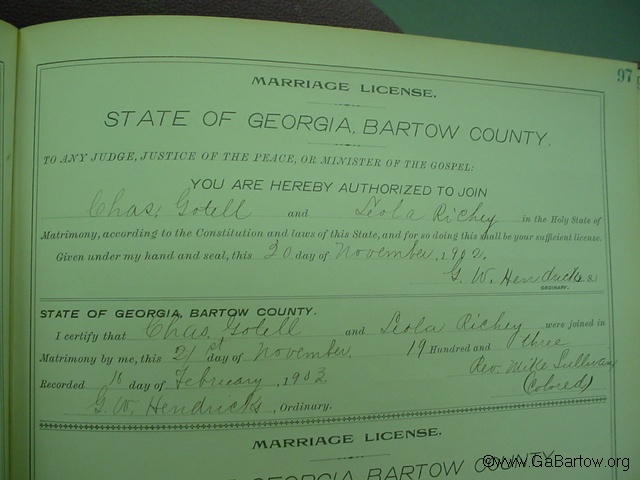 97
MARRIAGE LICENSE.
STATE OF GEORGIA, BARTOW COUNTY.
TO ANY JUDGE, JUSTICE OF THE PEACE, OR MINISTER OF THE GOSPEL:
YOU ARE HEREBY AUTHORIZED TO JOIN
Chas. Gotell and Leola Richey in the Holy State of
Matrimony, according to the Constitution and laws of this State, and for so doing this shall be your sufficient license.
Given under my hand and seal, this 20 day of November, 1902.
G. W. Hendricks
ORDINARY.
STATE OF GEORGIA, BARTOW COUNTY.
I certify that Chas. Gotell and Leola Richey were joined in
Matrimony by me, this 21st day of November. 19 Hundred and three
Recorded 16 day of February, 1903 Rev. Mike Sullivan
G. W. Hendricks, Ordinary. (Colored)
MARRIAGE LICENSE.
GEORGIA, BARTOW COUNTY
©www.GaBartow.org